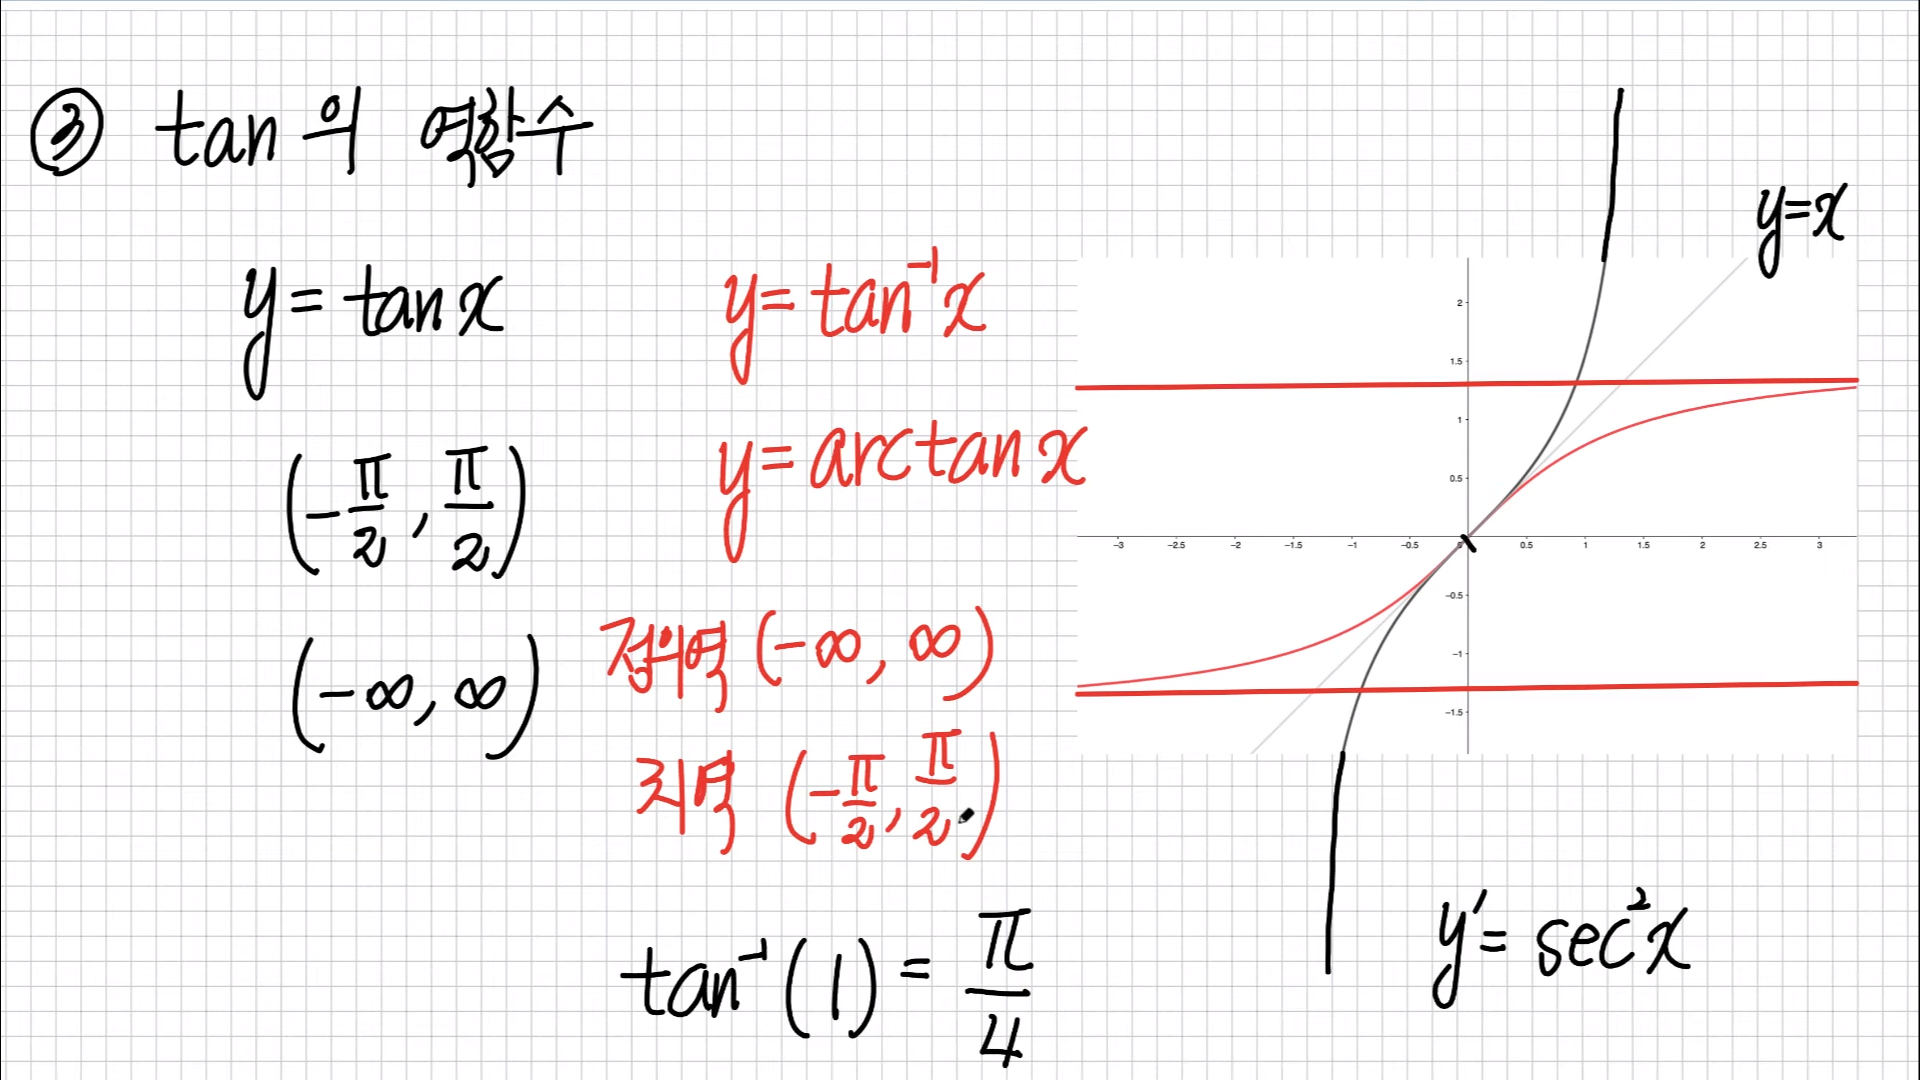 ③ tan의 역함수
y = tan x
(-π/2, π/2)
(-∞, ∞)
y = tan⁻¹x
y = arctan x
정의역 (-∞, ∞)
치역 (-π/2, π/2)
tan⁻¹(1) = π/4
y=x
2
1.5
1
0.5
-3 -2.5 -2 -1.5 -1 -0.5 0 0.5 1 1.5 2 2.5 3
-0.5
-1
-1.5
y′ = sec²x